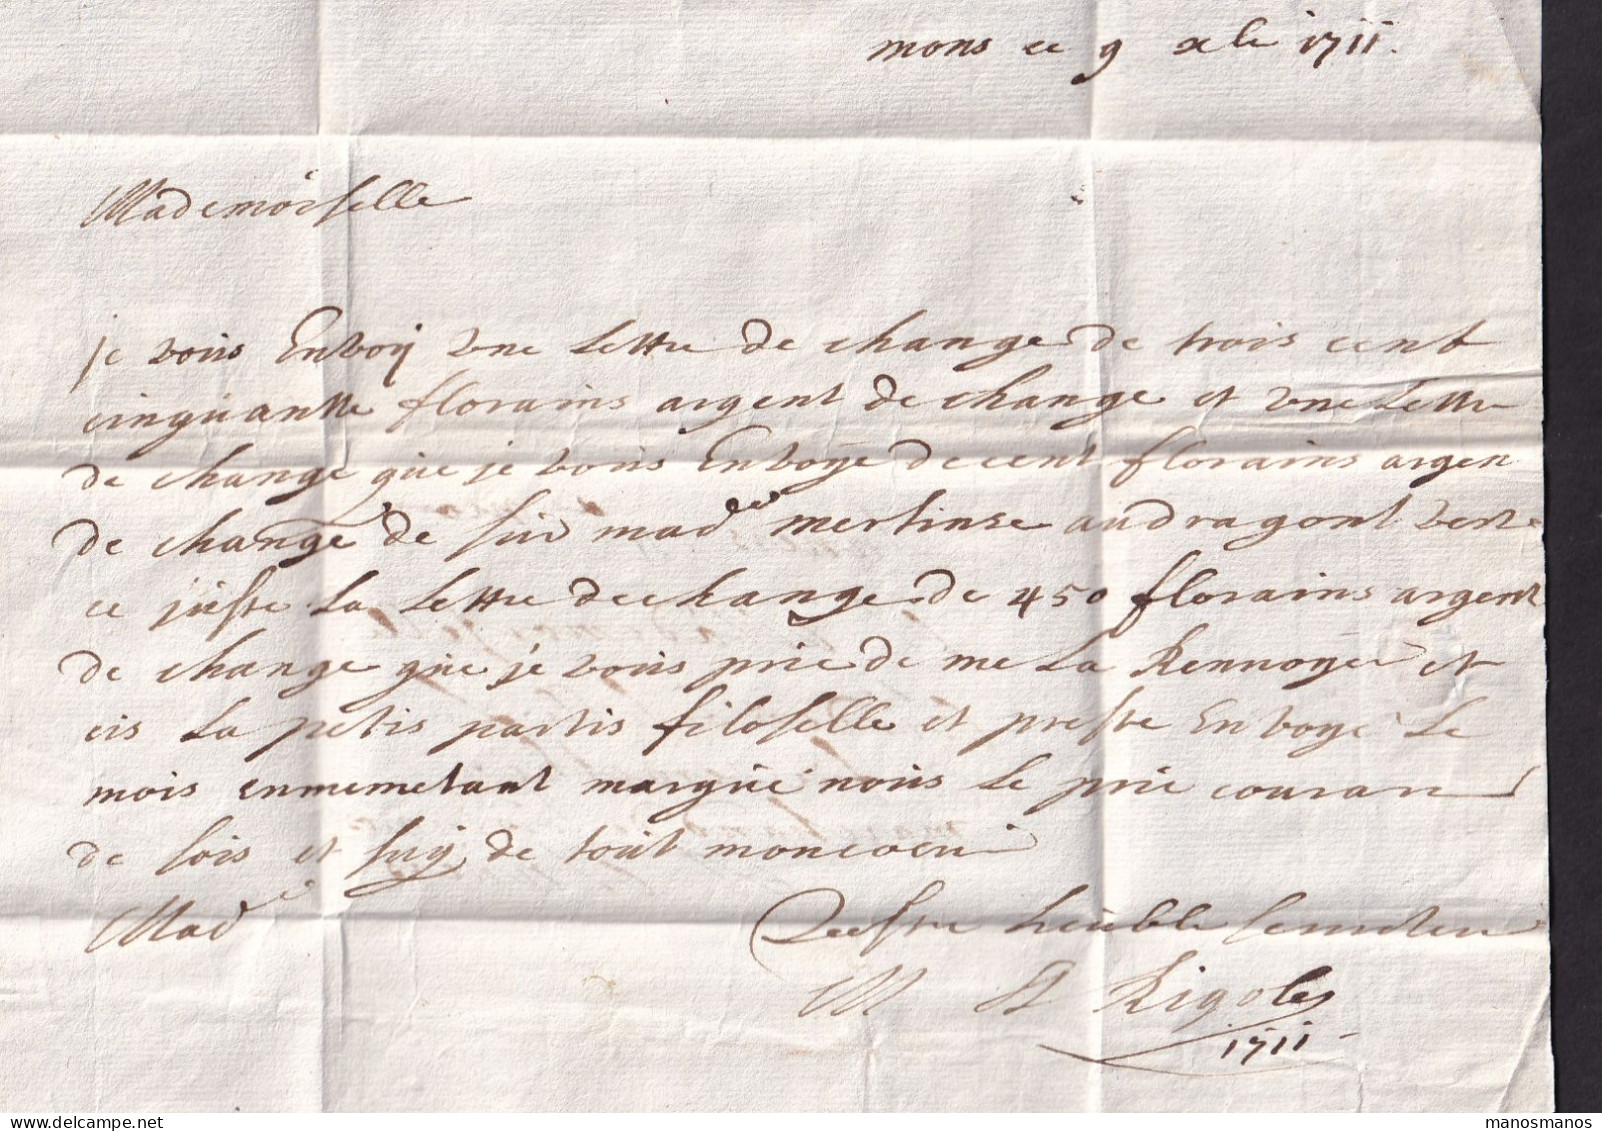 mons ce 9 xbe 1711.
Mademoiselle
je vous Envoÿ vne Lettre de change de trois cent
cinquantte florains argent de change et vne Lettre
de change que je vous Envoÿe de cent florains argen
de change de sur mad^e mertinse au dragont verte
ce juste La Lettre de change de 450 florains argent
de change que je vous prie de me La Rennoÿe et
La petis partis filoselle et preste Envoÿe Le
mois enmemetant marque nous Le prie couran
de sois et suÿ de tout mon coeur
Mad^e
Vostre heuble
M Rigoles
1711
manosmanos